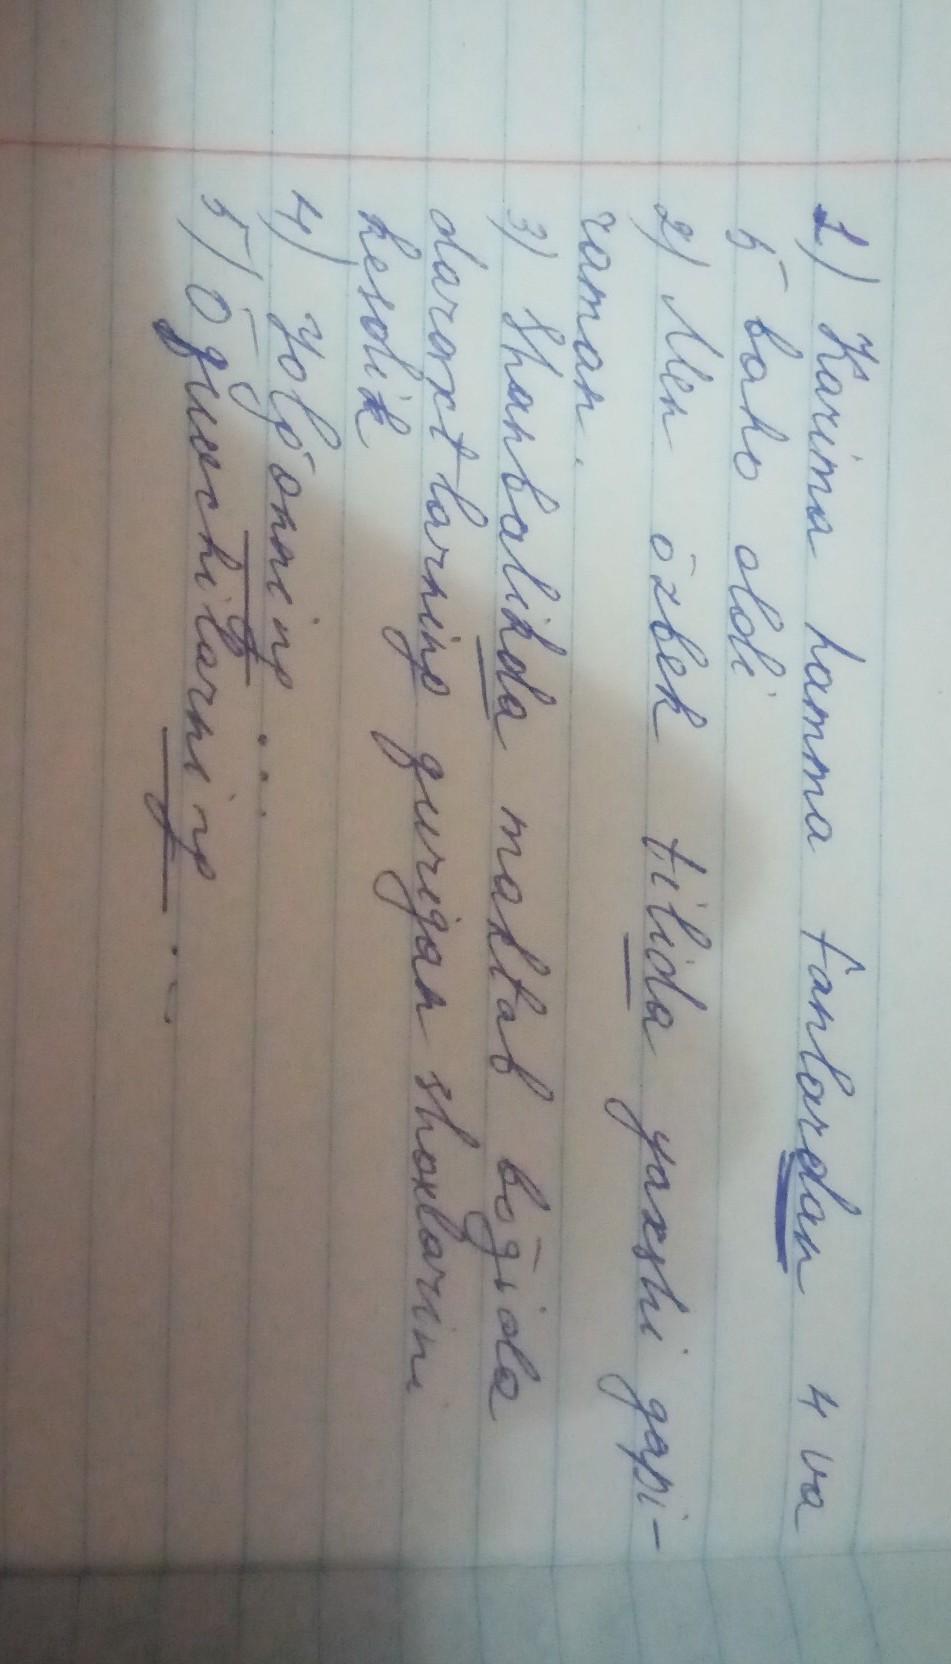 1) Karima hamma fanlardan 4 va
5 baho oldi
2) Men ōzbek tilida yaxshi gapi-
raman.
3) Shanbalikda maktab bōgida
daraxtlarning qurigan shoxlarini
kesdik
4) Yolgōnning ...
5) Oquvchilarning ...